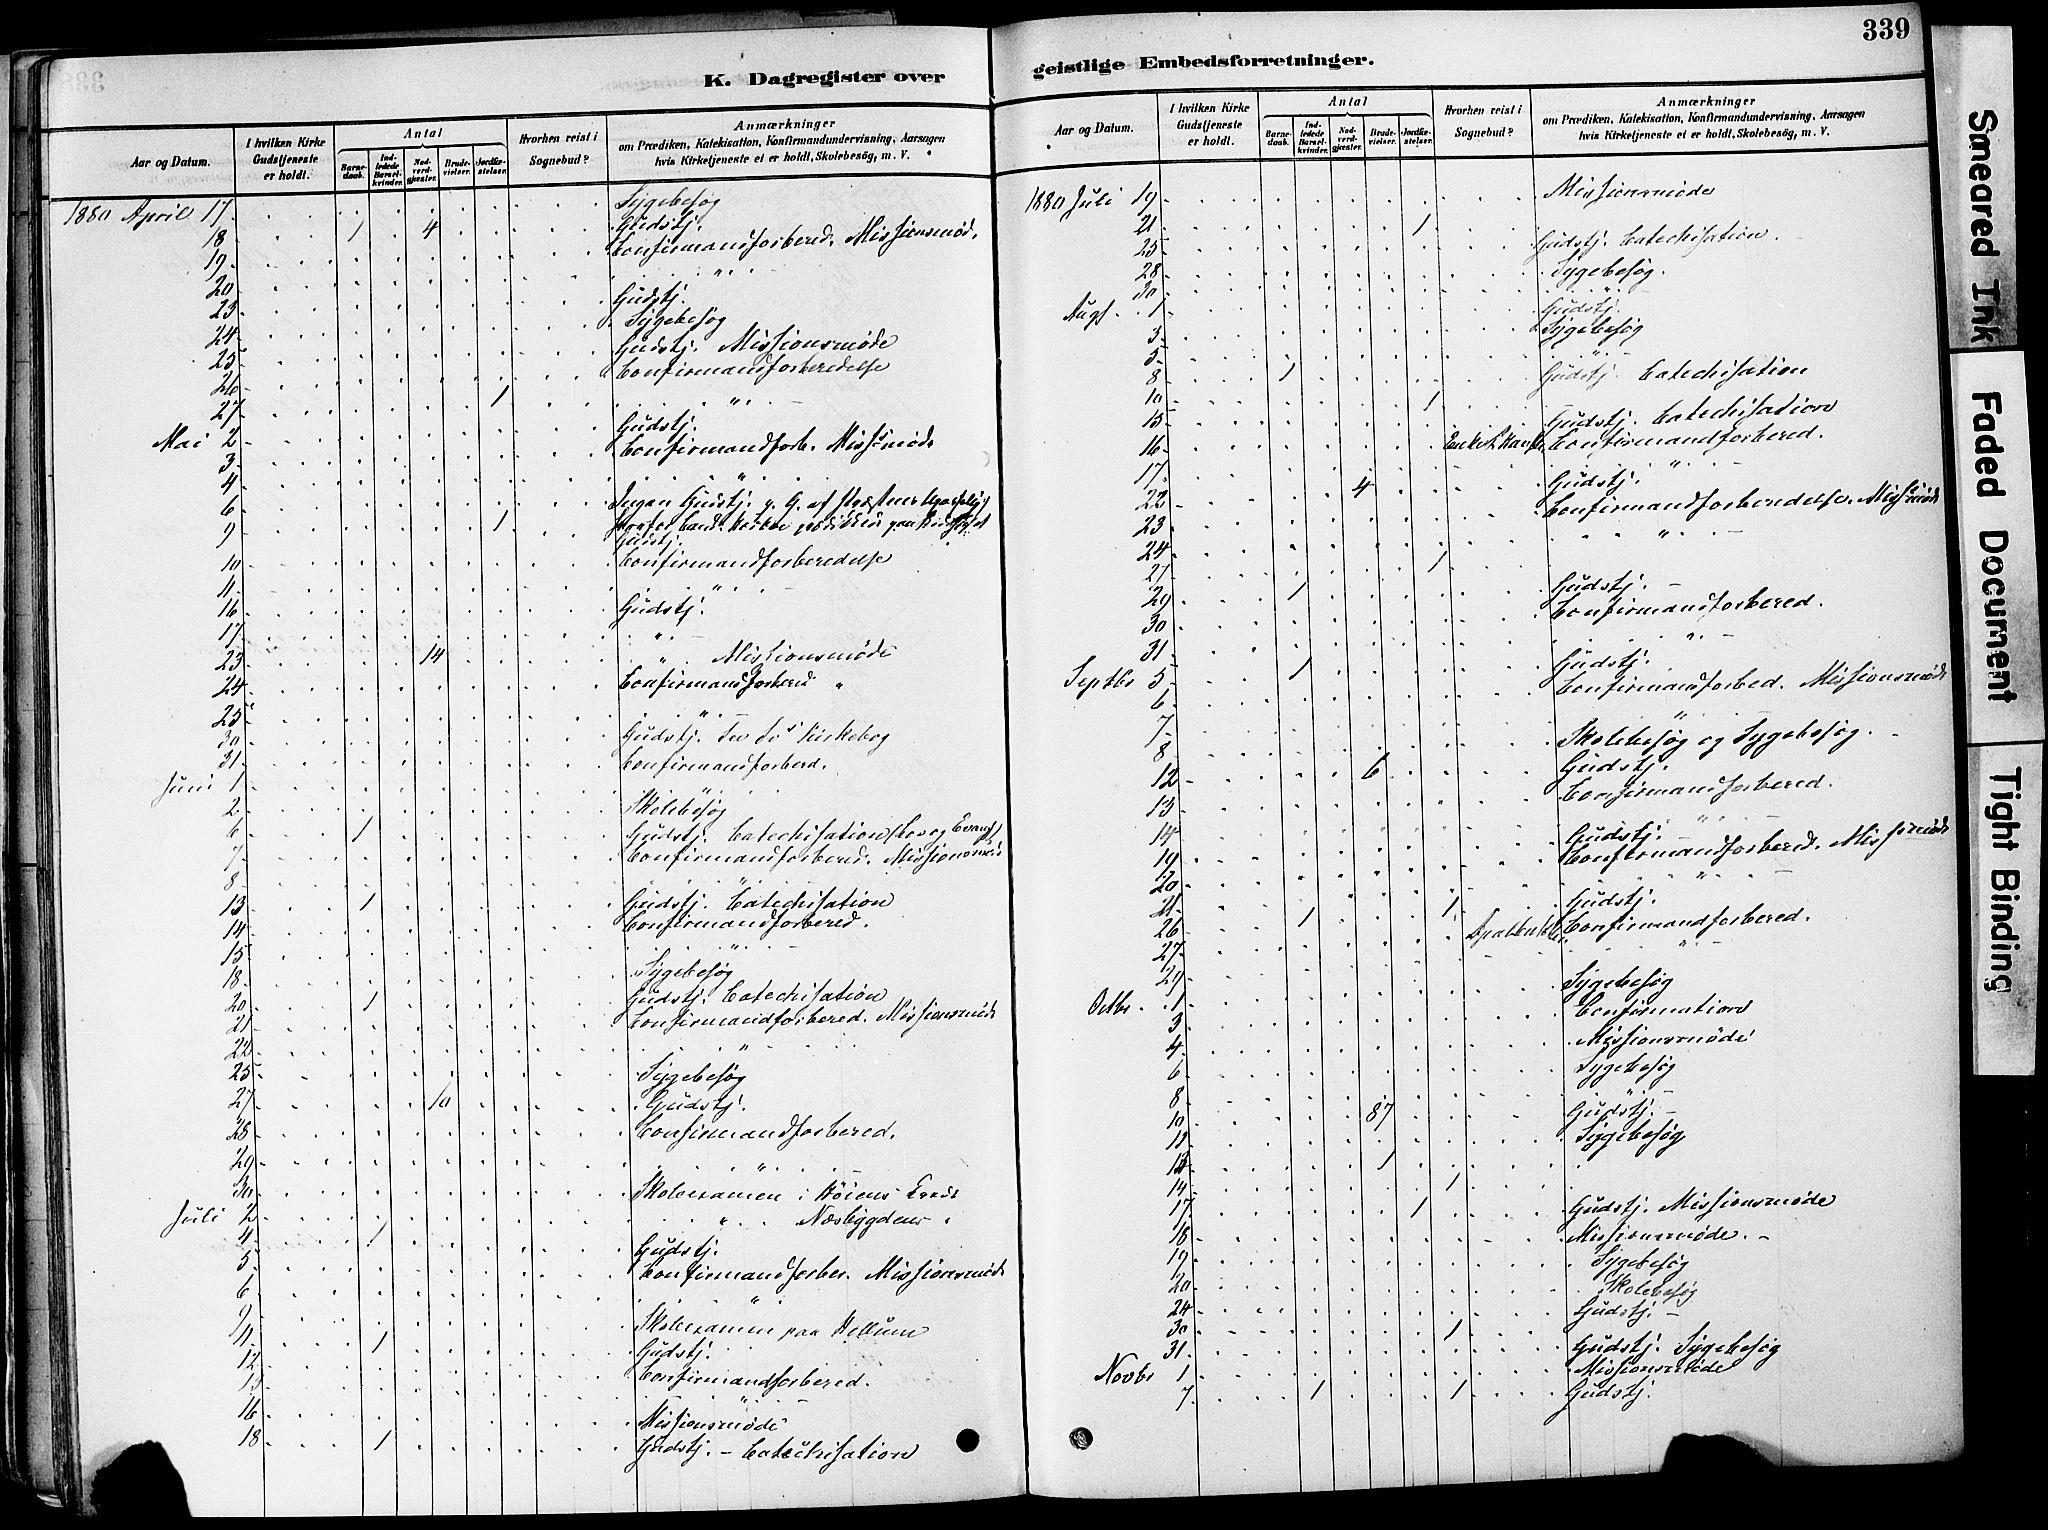 339
K. Dagregister over
Aar og Datum.
I hvilken Kirke Gudstjeneste er holdt.
Antal
Barne-daab.
Ind-ledede Barsel-kvinder.
Nad-verd-gjæster.
Brude-vielser.
Jordfæ-stelser.
Hvorhen reist i Sognebud?
Anmærkninger
om Prædiken, Katekisation, Konfirmandundervisning, Aarsagen
hvis Kirketjeneste ei er holdt, Skolebesøg, m. V.
1880 April 17. Sygebesøg
18 1 4 Gudstj.
19 Confirmandforbered. Missionsmöd.
20 "
23 Gudstj.
24 Sygebesøg
25 Gudstj. Missionsmöde
26 Confirmandforberedelse
27 1 "
Mai 2 Gudstj.
3 Confirmandforb. Missˢmöde
4 "
6 Ingen Gudstj.
9 1 Gudstj.
10 Confirmandforberedelse
11 "
16 Gudstj.
17 "
23 14 " Missionsmöde
24 Confirmandforbered "
25 "
30 Gudstj. Kirkebog
31 Confirmandforberd.
Juni 1 "
2 Skolebesøg
6 1 Gudstj. Catechisation
7 Confirmandforbered. Missionsmöde
8 "
13 1 Gudstj. Catechisation
14 Confirmandforbered.
15 "
18 Sygebesøg
20 1 Gudstj. Catechisation
21 Confirmandforbered. Missionsmöde
22 "
25 Sygebesøg
27 10 Gudstj.
28 Confirmandforbered.
29 "
30 Skoleexamen i Höiens Kreds
Juli 2 " Næsbygdens "
4 1 Gudstj.
5 Confirmandforber. Missionsmöde
6 "
9 Skoleexamen paa Hellum
11 1 Gudstj.
12 Confirmandforbered.
13 "
16 Missionsmöde
18 1 Gudstj. – Catechisation
geistlige Embedsforretninger.
Aar og Datum.
I hvilken Kirke Gudstjeneste er holdt.
Antal
Barne-daab.
Ind-ledede Barsel-kvinder.
Nad-verd-gjæster.
Brude-vielser.
Jordfæ-stelser.
Hvorhen reist i Sognebud?
Anmærkninger
om Prædiken, Katekisation, Konfirmandundervisning, Aarsagen
hvis Kirketjeneste ei er holdt, Skolebesøg, m. V.
1880 Juli 19 Missionsmöde
21 1
25 Gudstj. Catechisation
28 Sygebesøg.
30 "
Augˢ. 1 Gudstj.
3 Sygebesøg
5 "
8 1 Gudstj. Catechisation
10 1
15 Gudstj. Catechisation
16 Confirmandforbered.
17 "
22 4 Gudstj.
23 Confirmandforberedelse. Missˢmöde
24 "
27 1
29 1 Gudstj.
30 Confirmandforbered.
31 "
Septbr 5 1 Gudstj.
6 Confirmandforbed. Missionsmöde
7 "
8 Skolebesøg og Sygebesøg.
12 6 Gudstj.
13 Confirmandforbered.
14 "
19 Gudstj.
20 Confirmandforbered. Missˢmöde
21 1 "
26 1 Gudstj.
27 Confirmandforbered.
29 "
Octbr 1 Sygebesøg
3 Confirmation
4 Missionsmöde
6 Sygebesøg
8 "
10 87 Gudstj.
12 Sygebesøg
13 1
14 1
17 1 Gudstj. Missionsmöde
18 Missionsmöde.
19 Sygebesøg
20 Skolebesøg
24 Gudstj.
30 1
31 Gudstj. Sygebesøg
Novbr 1 Missionsmöde
7 1 1 Gudstj.
Smeared Ink
Faded Document
Tight Binding